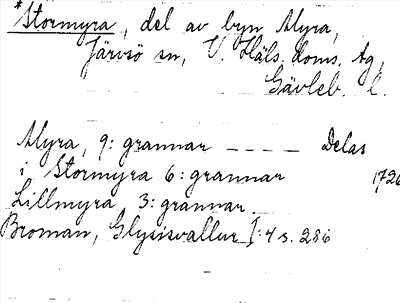 *Stormyra, del av byn Myra,
Järvsö sn, V. Häls. doms. tg,
Gävleb. l.
Myra, 9: grannar ---- Delas
i Stormyra 6: grannar 1726
Lillmyra 3: grannar
Broman, Glysisvallur I: 4 s. 286